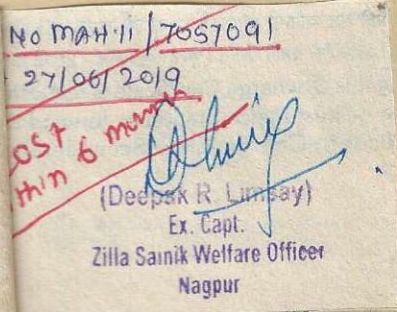 No MAH 11 / 7057091
27/06/2019
OST
thin 6 month
(Deepak R. Limsay)
Ex. Capt.
Zilla Sainik Welfare Officer
Nagpur